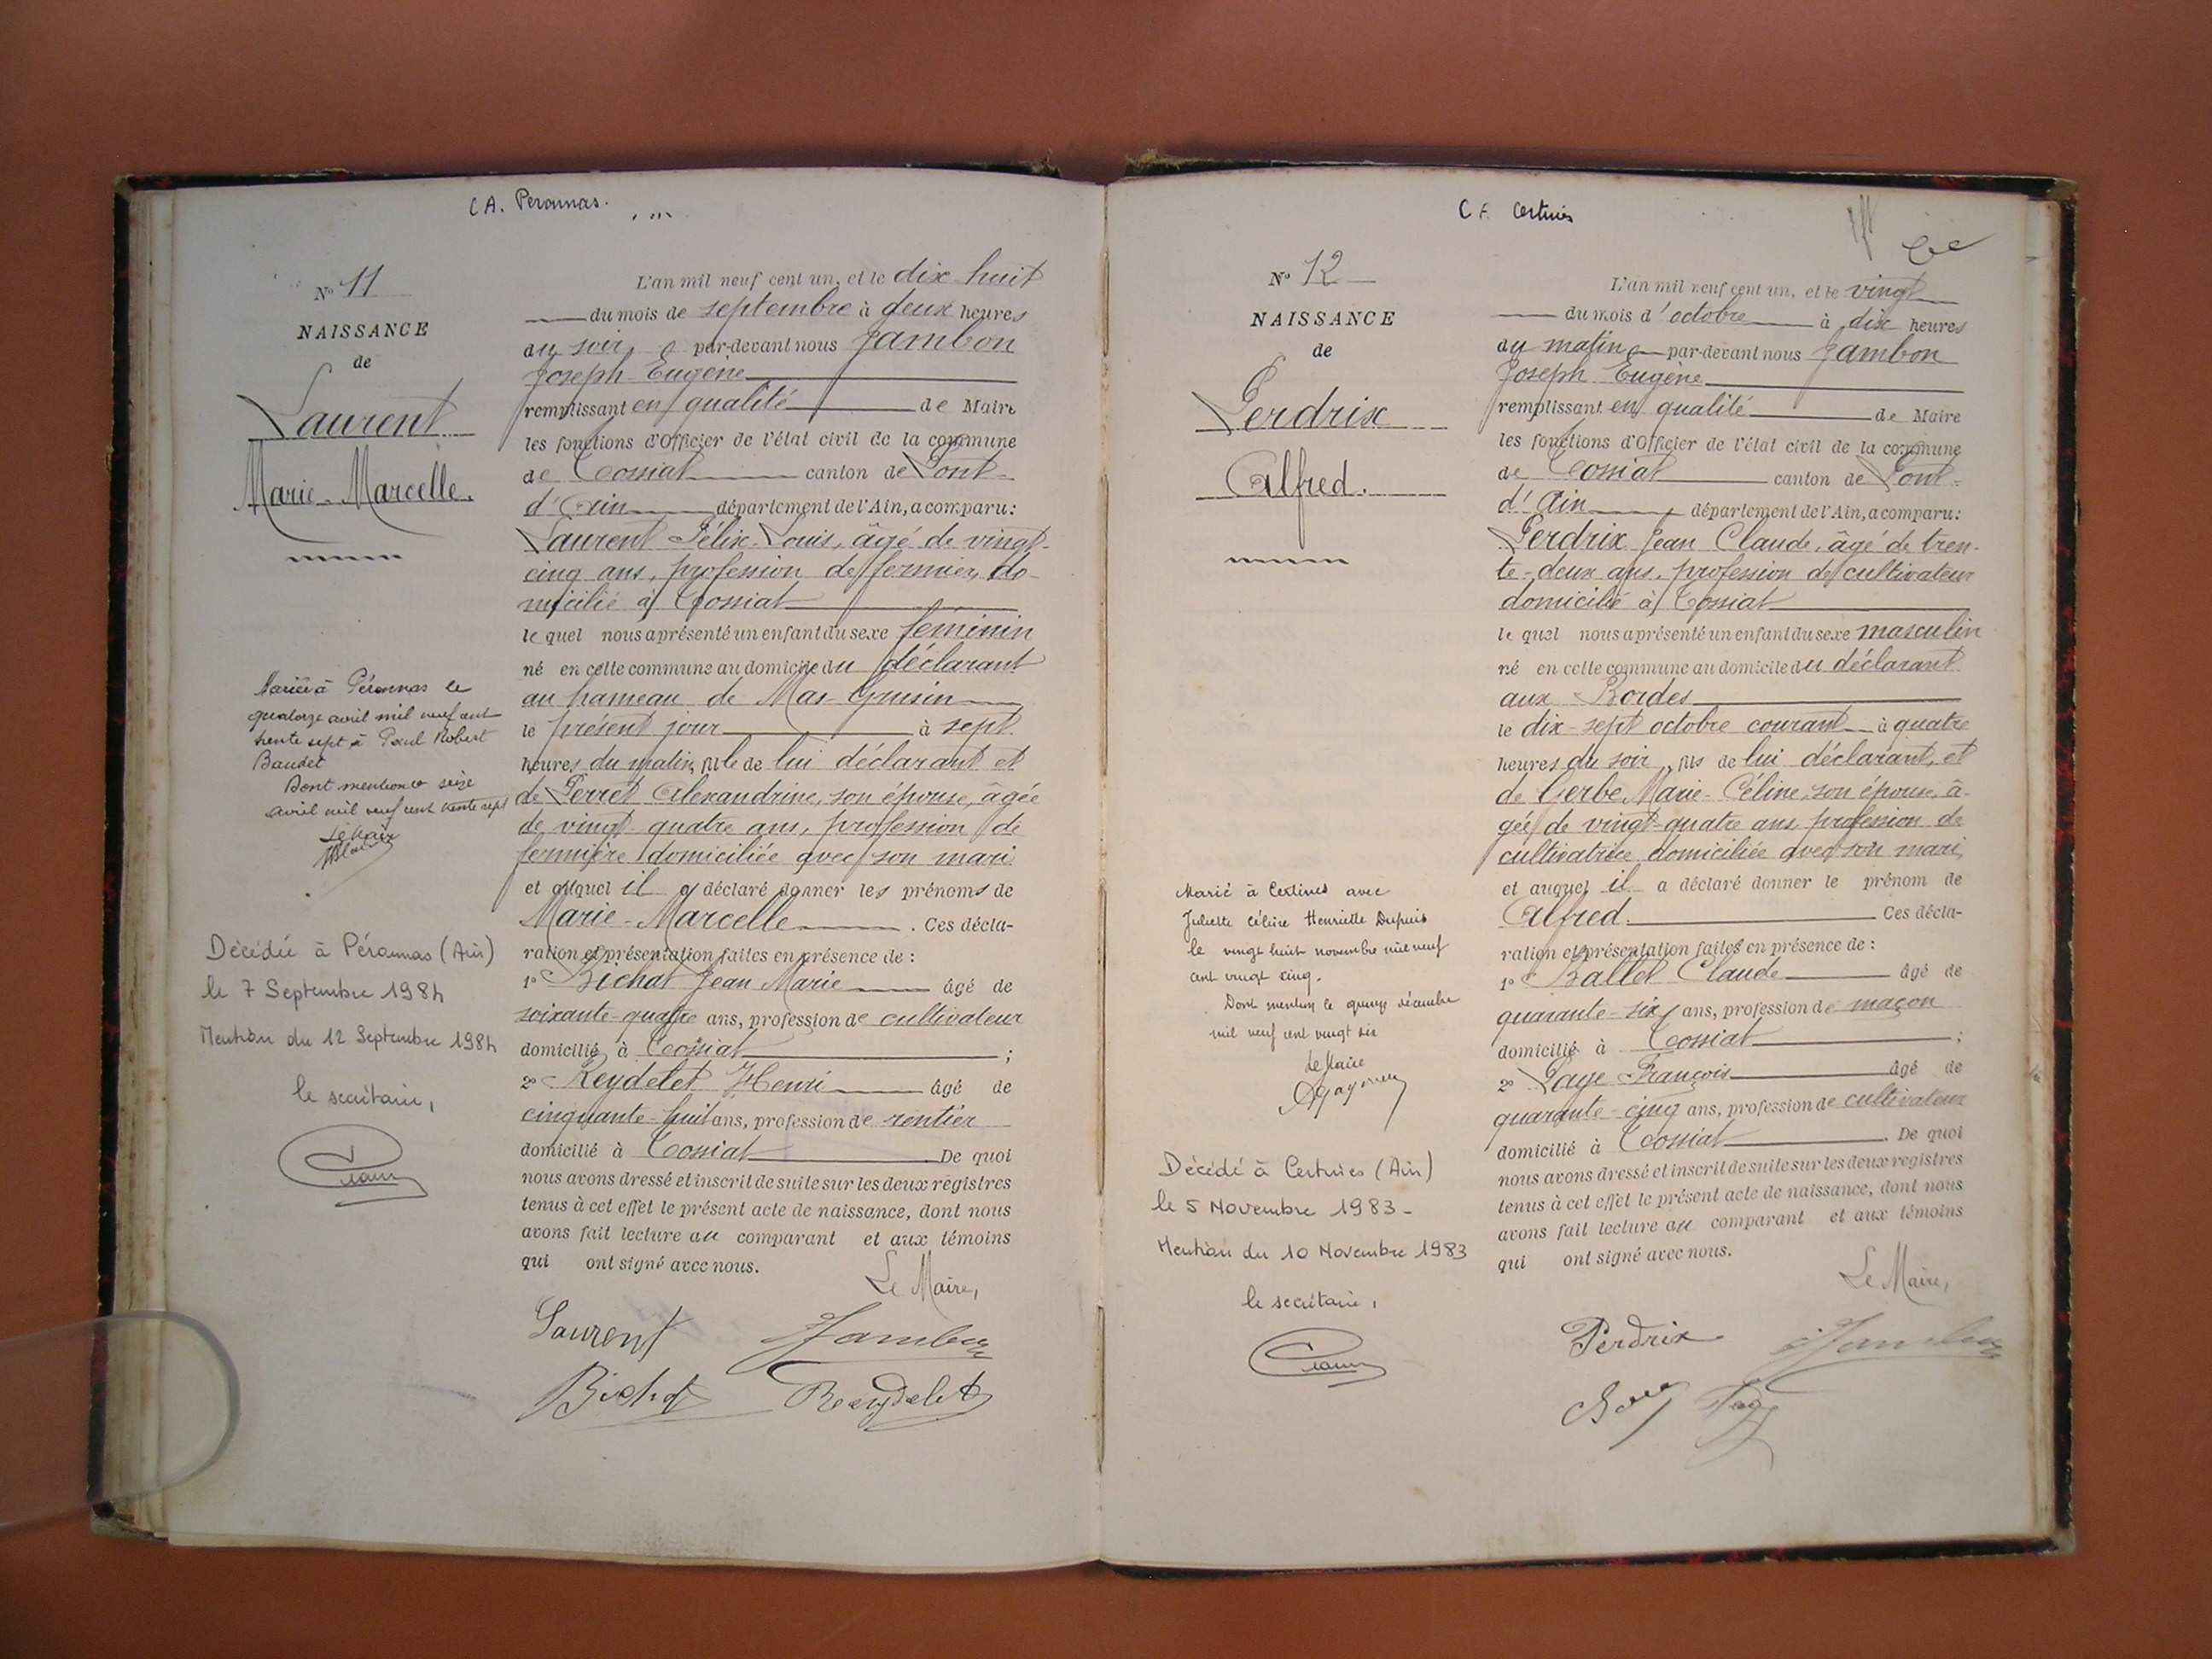 CA. Peronnas.
N° 11
NAISSANCE
de
Laurent
Marie-Marcelle.
Mariée à Péronnas le
quatorze avril mil neuf cent
trente sept à Paul Robert
Baudet
Dont mention le seize
avril mil neuf cent trente sept
Le Maire
Décédée à Péronnas (Ain)
le 7 Septembre 1984
Mention du 12 Septembre 1984
le secrétaire,
L'an mil neuf cent un, et le dix huit
du mois de septembre à deux heures
du soir, par-devant nous Jambon
Joseph Eugène
remplissant en qualité de Maire
les fonctions d'Officier de l'état civil de la commune
de Tossiat canton de Pont-
d'Ain département de l'Ain, a comparu:
Laurent Félix-Louis, âgé de vingt-
cinq ans, profession de fermier, do-
micilié à Tossiat
le quel nous a présenté un enfant du sexe féminin
né en cette commune au domicile du déclarant
au hameau de Mas-Grusin
le présent jour à sept
heures du matin, fille de lui déclarant et
de Perret Alexandrine, son épouse, âgée
de vingt-quatre ans, profession de
fermière domiciliée avec son mari
et auquel il a déclaré donner les prénoms de
Marie-Marcelle. Ces décla-
ration et présentation faites en présence de :
1° Bichat Jean Marie âgé de
soixante-quatre ans, profession de cultivateur
domicilié à Tossiat ;
2° Reydelet Henri âgé de
cinquante-huit ans, profession de rentier
domicilié à Tossiat De quoi
nous avons dressé et inscrit de suite sur les deux registres
tenus à cet effet le présent acte de naissance, dont nous
avons fait lecture au comparant et aux témoins
qui ont signé avec nous.
Le Maire,
Laurent Jambon
Bichat Reydelet
CF Certines
N° 12
NAISSANCE
de
Perdrix
Alfred.
Marié à Certines avec
Juliette Céline Henriette Dupuis
le vingt huit novembre mil neuf
cent vingt cinq.
Dont mention le quinze décembre
mil neuf cent vingt six
Le Maire
Décédé à Certines (Ain)
le 5 Novembre 1983-
Mention du 10 Novembre 1983
le secrétaire,
L'an mil neuf cent un, et le vingt
du mois d'octobre à dix heures
du matin par-devant nous Jambon
Joseph Eugène
remplissant en qualité de Maire
les fonctions d'Officier de l'état civil de la commune
de Tossiat canton de Pont-
d'Ain département de l'Ain, a comparu:
Perdrix Jean Claude, âgé de tren-
te-deux ans, profession de cultivateur
domicilié à Tossiat
le quel nous a présenté un enfant du sexe masculin
né en cette commune au domicile du déclarant
aux Bordes
le dix-sept octobre courant à quatre
heures du soir, fils de lui déclarant, et
de Gerbe Marie-Céline, son épouse, â-
gée de vingt-quatre ans, profession de
cultivatrice domiciliée avec son mari,
et auquel il a déclaré donner le prénom de
Alfred. Ces décla-
ration et présentation faites en présence de :
1° Ballet Claude âgé de
quarante-six ans, profession de maçon
domicilié à Tossiat ;
2° Page François âgé de
quarante-cinq ans, profession de cultivateur
domicilié à Tossiat. De quoi
nous avons dressé et inscrit de suite sur les deux registres
tenus à cet effet le présent acte de naissance, dont nous
avons fait lecture au comparant et aux témoins
qui ont signé avec nous.
Le Maire,
Perdrix Jambon
Page